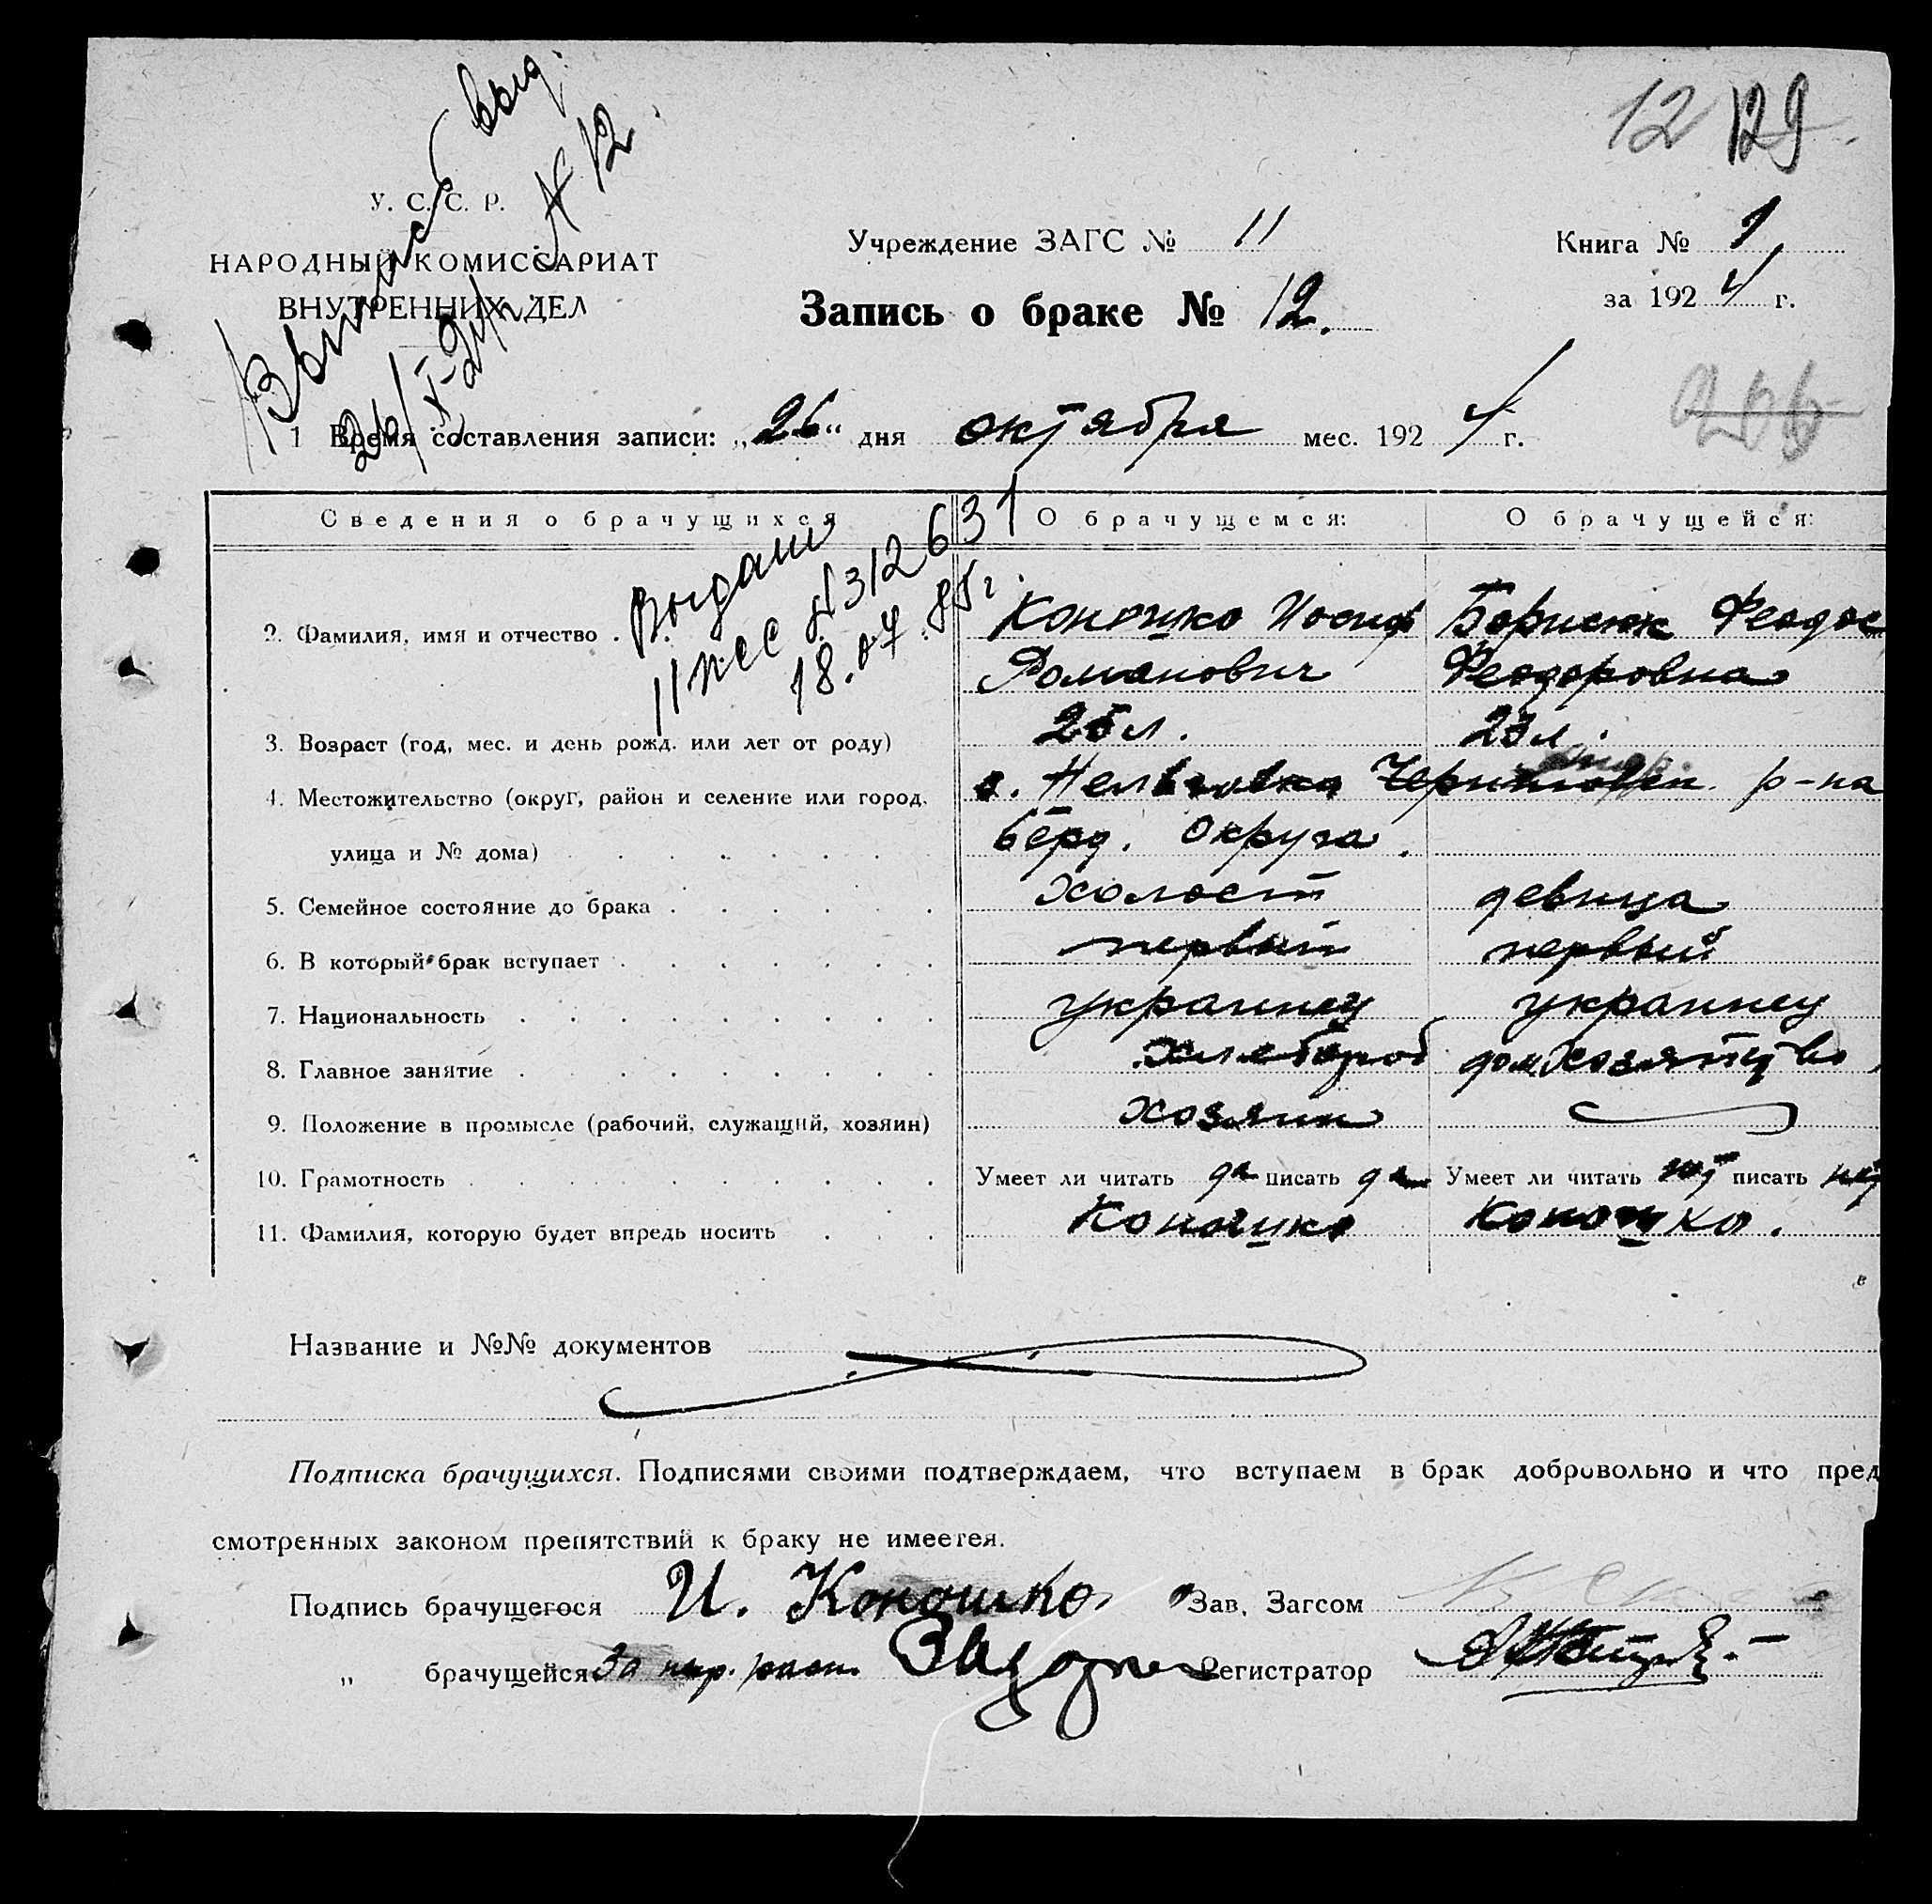 12 129
Выпись выд.
26/X-24 г. № 12
У. С. С. Р.
НАРОДНЫЙ КОМИССАРИАТ
ВНУТРЕННИХ ДЕЛ
Учреждение ЗАГС № 11
Книга № 1
за 1924 г.
Запись о браке № 12.
1 Время составления записи: „26“ дня октября мес. 1924 г.
Сведения о брачущихся О брачущемся: О брачущейся:
Выдано
11 ПСС № 312631
18.07.85 г.
2. Фамилия, имя и отчество . Конюшко Иосиф Борисюк Феодос
Романович Феодоровна
3. Возраст (год, мес. и день рожд. или лет от роду) 25 л. 23 л.
4. Местожительство (округ, район и селение или город, с. р-на
улица и № дома) Берд. Округа.
5. Семейное состояние до брака холост девица
6. В который брак вступает первый первый
7. Национальность украинец украинец
8. Главное занятие хлебороб дом. хозяйство,
9. Положение в промысле (рабочий, служащий, хозяин) хозяин
10. Грамотность Умеет ли читать да писать да Умеет ли читать нет писать нет
11. Фамилия, которую будет впредь носить Конюшко Конюшко.
Название и №№ документов
Подписка брачущихся. Подписями своими подтверждаем, что вступаем в брак добровольно и что пред
смотренных законом препятствий к браку не имеегея.
Подпись брачущегося И. Конюшко Зав. Загсом
„ брачущейся За нер. Регистратор